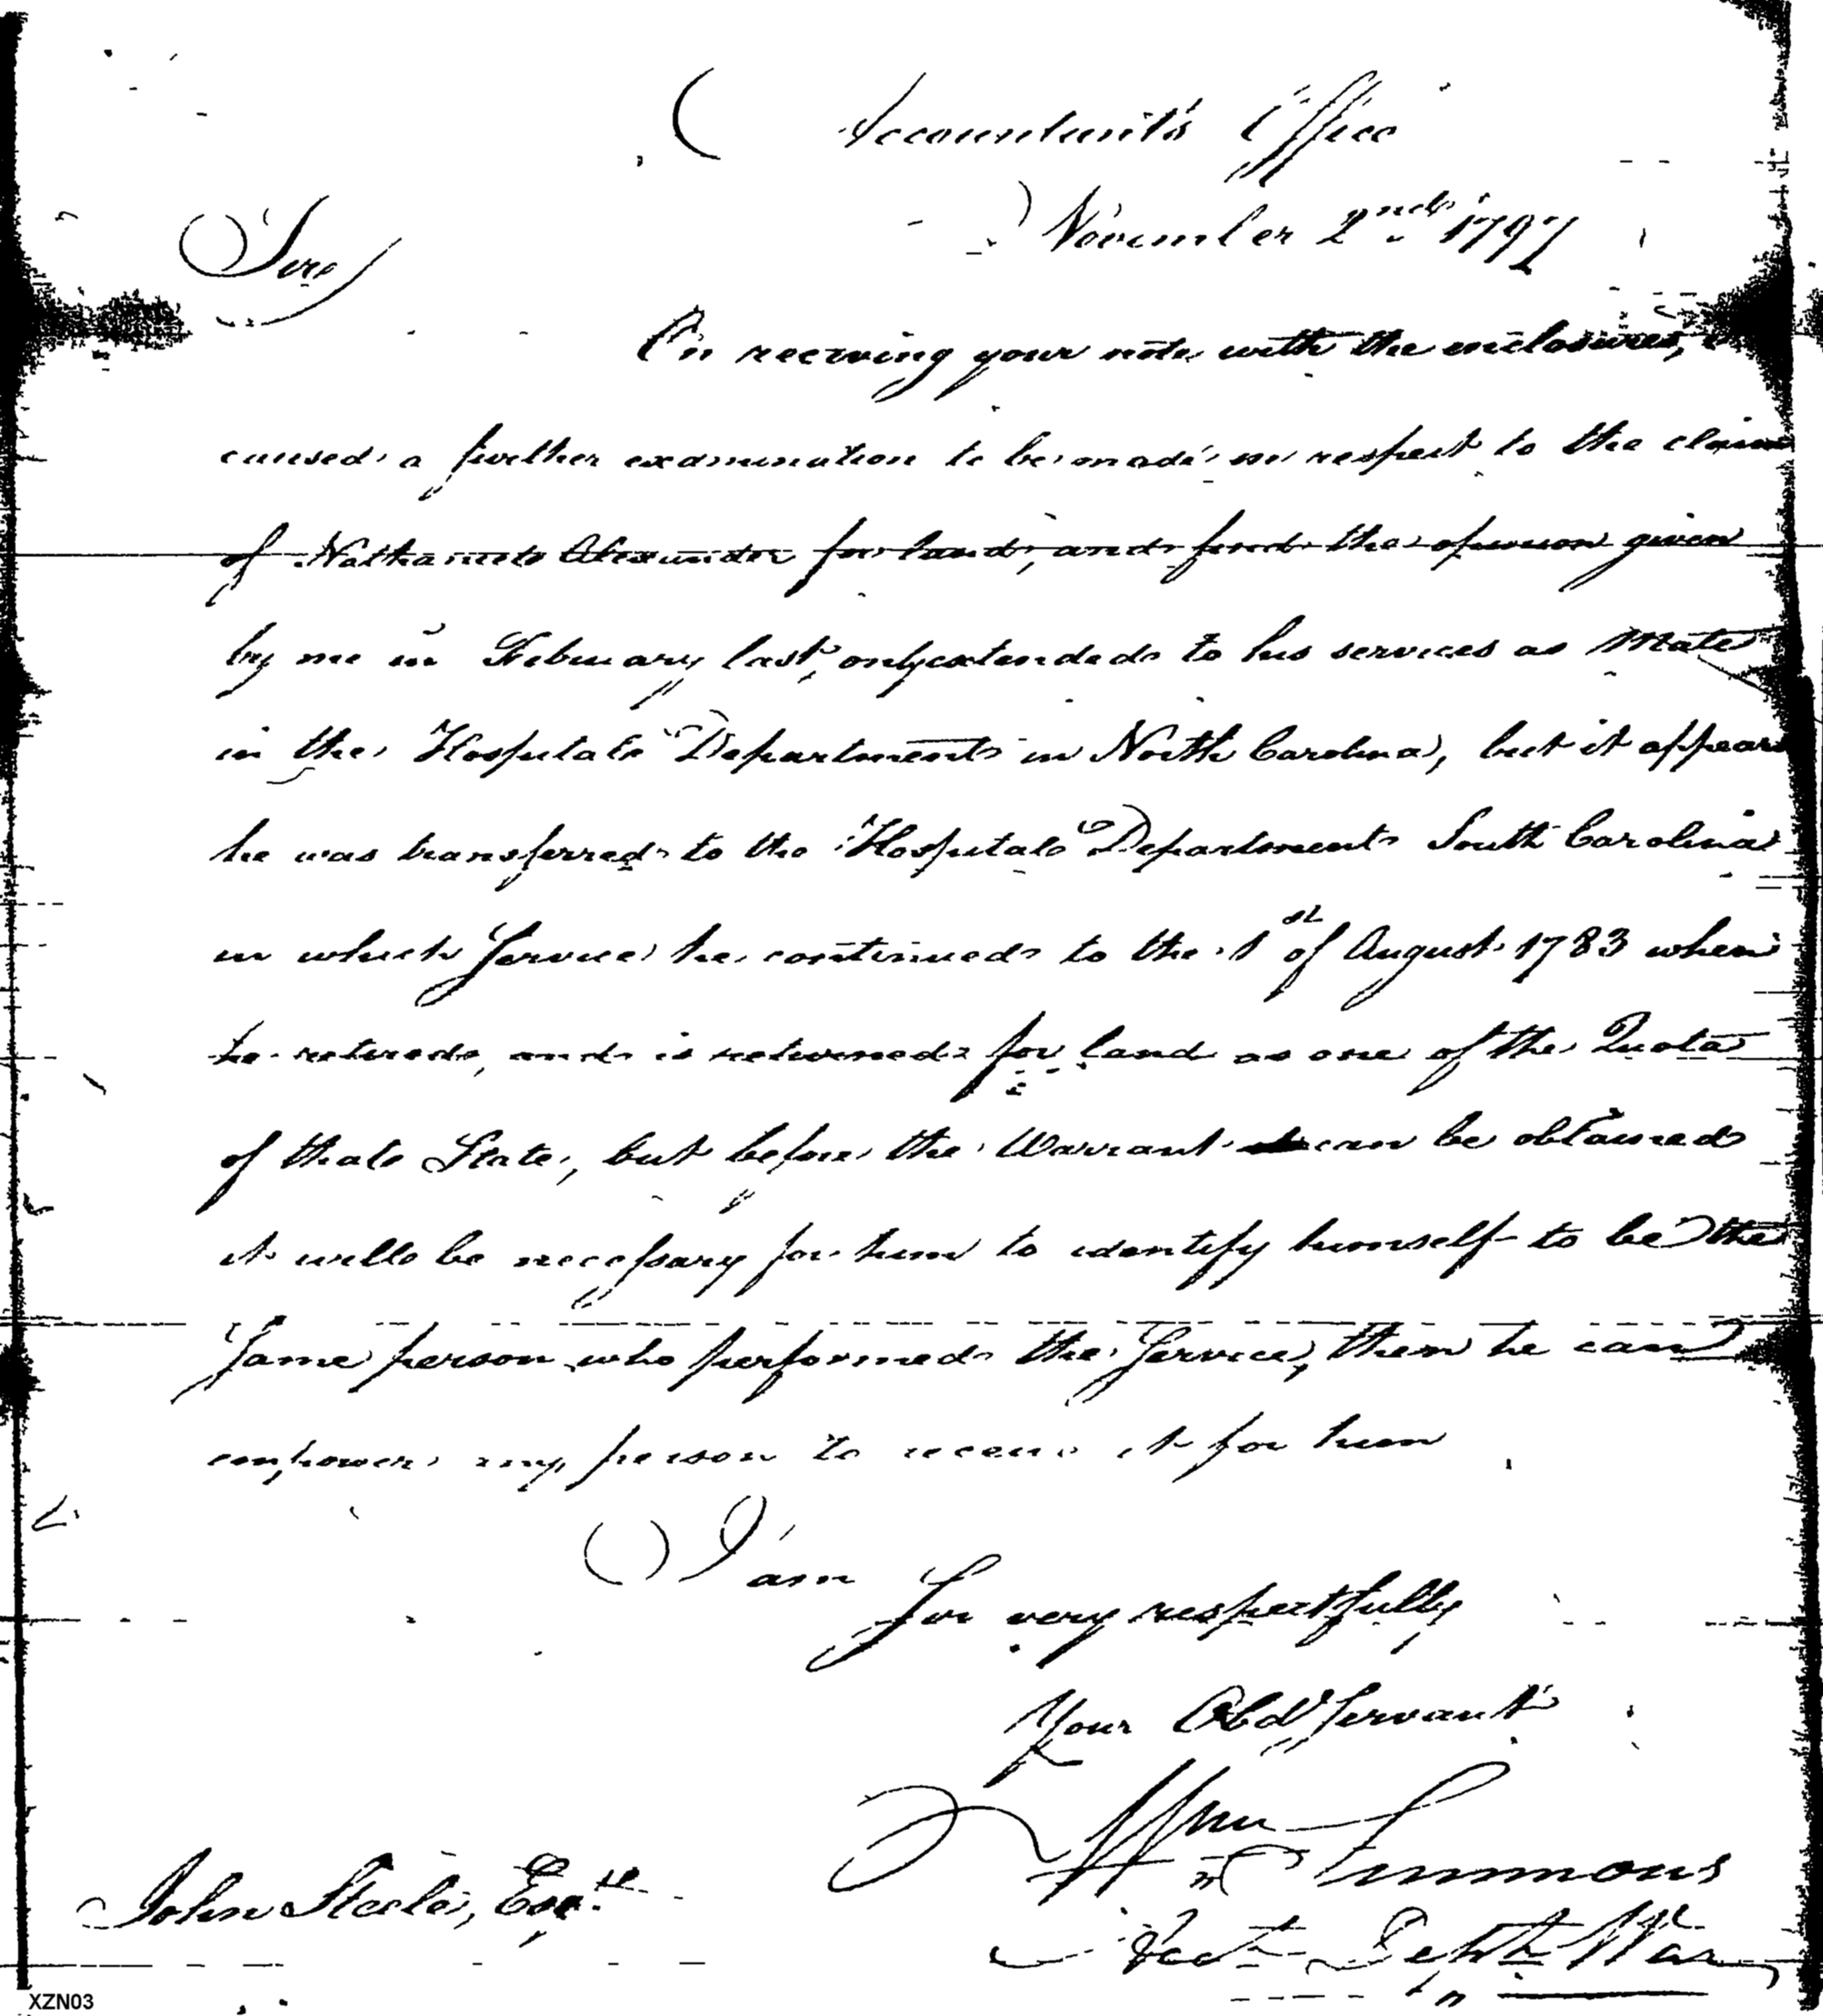 Accountant's Office
November 2nd 1797
Sir,
On receiving your note with the enclosures, I
caused a further examination to be made in respect to the claim
of Nathaniel Alexander for land, and find the opinion given
by me in February last, only extended to his services as Mate
in the Hospital Department in North Carolina, but it appears
he was transferred to the Hospital Department South Carolina
in which Service he continued to the 1st of August 1783 when
he retired, and is returned for land as one of the Quota
of that State, but before the Warrant can be obtained
it will be necessary for him to identify himself to be the
Same person who performed the Service, then he can
empower any person to receive it for him
I am
Sir very respectfully
Your Obdt Servant
Wm Simmons
John Steele, Esqr.
Acct. Dept. War
XZN03